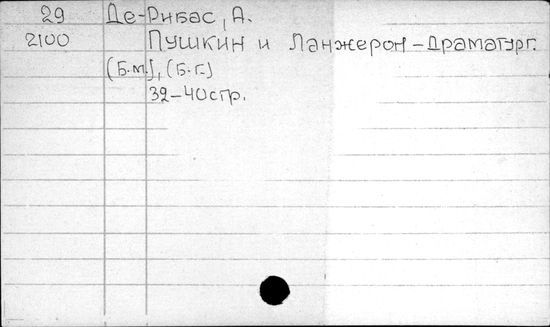 29 Де-Рибас, А.
2100 Пушкин и Ланжерон-драматург.
(Б.м.), (Б.г.)
32-40стр.